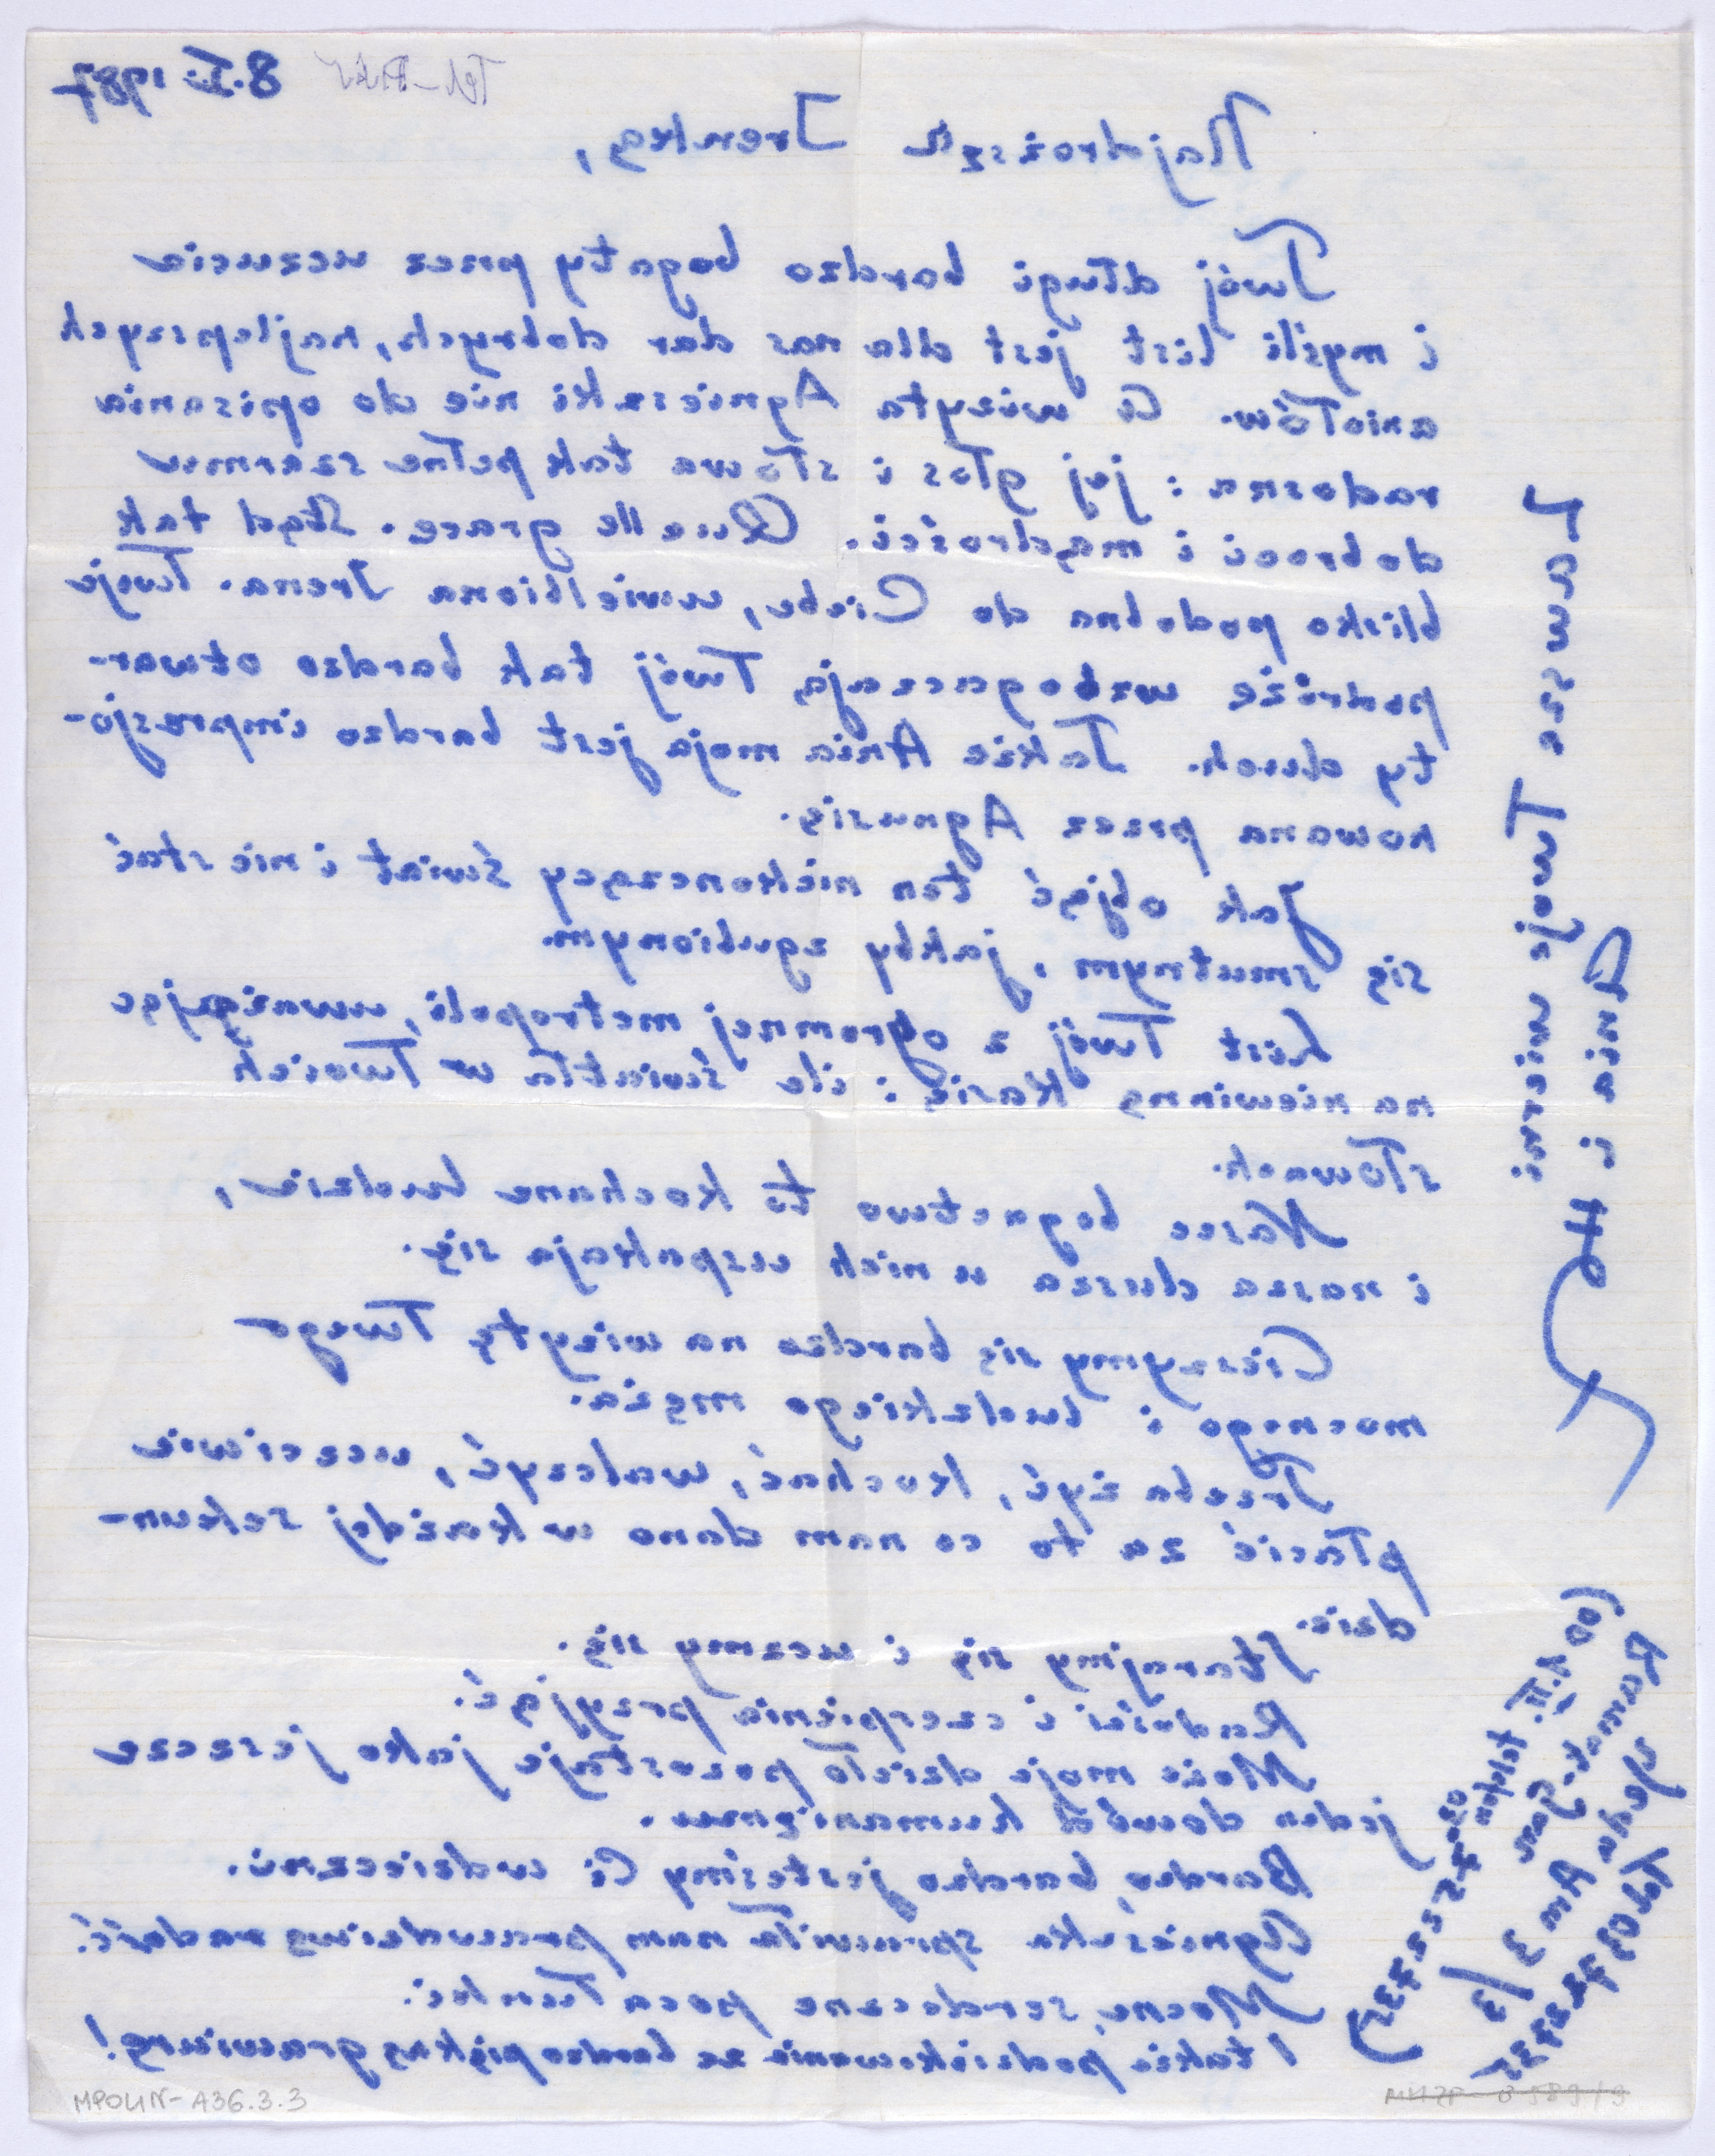 Tel-Aviv 8.I. 1987
Najdroższa Irenkę,
Twój długi bardzo bogaty przez uczucia
i myśli list jest dla nas dar dobrych, najlepszych
aniołów. A wizyta Agnieszki nie do opisania
radosna: jej głos i słowa tak pełne szarmu
dobroci i mądrości. Quelle grace. Stąd tak
blisko podobna do Ciebe, uwielbiona Irena. Twoje
podróże wzbogaczają Twój tak bardzo otwar-
ty duch. Także Ania moja jest bardzo impresjo-
nowana przez Agnusię.
Jak objąć ten niekonczący świat i nie stać
się smutnym, jakby zgubionym.
List Twój z ogromnej metropoli, uważając
na niewinną Kasię: ile światła w Twoich
słowach.
Nasze bogactwo to kochane ludzie,
i nasza dusza u nich uspakaja się.
Cieszymy się bardzo na wizytę Twego
mocnego i ludzkiego męża.
Trzeba żyć, kochać, walczyć, uczciwie
płacić za to co nam dano w każdej sekun-
dzie.
Starajmy się i uczmy się.
Radości i czerpienia przyjąć.
Może moje dzieło pozostaje jako jeszcze
jeden dowód humanizmu.
Bardzo, bardzo jesteśmy Ci wdzieczni.
Agnieszka sprawiła nam prawdziwą radość.
Mocne, serdeczne pocałunki.
I także podziekowanie za bardzo piękną grawiurę!
Zawsze Twoje wierni.
Ania i
Ramat-Gan
Yeda Am 3
/3
tel 03 7
(od 2.II. telefon
03-752 2735)
MPOLIN-A36.3.3